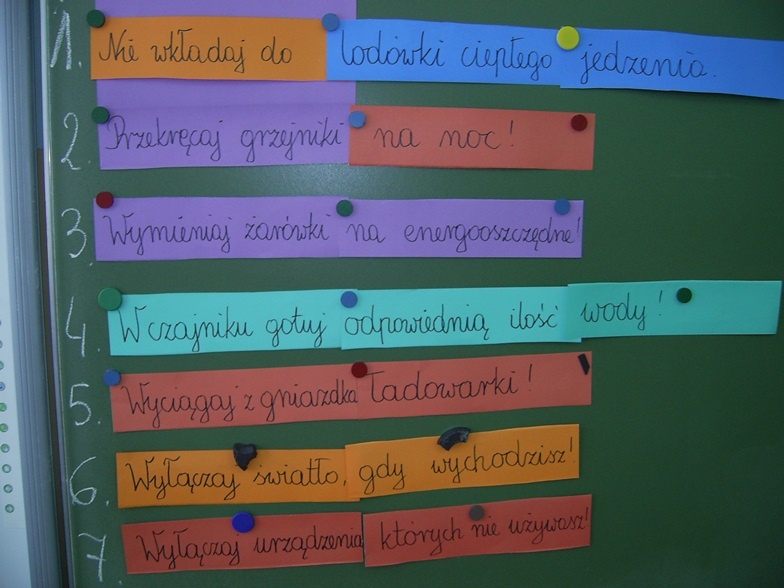 1. Nie wkładaj do lodówki ciepłego jedzenia.
2. Przekręcaj grzejniki na noc!
3. Wymieniaj żarówki na energooszczędne!
4. W czajniku gotuj odpowiednią ilość wody!
5. Wyciągaj z gniazdka ładowarki!
6. Wyłączaj światło, gdy wychodzisz!
7. Wyłączaj urządzenia których nie używasz!